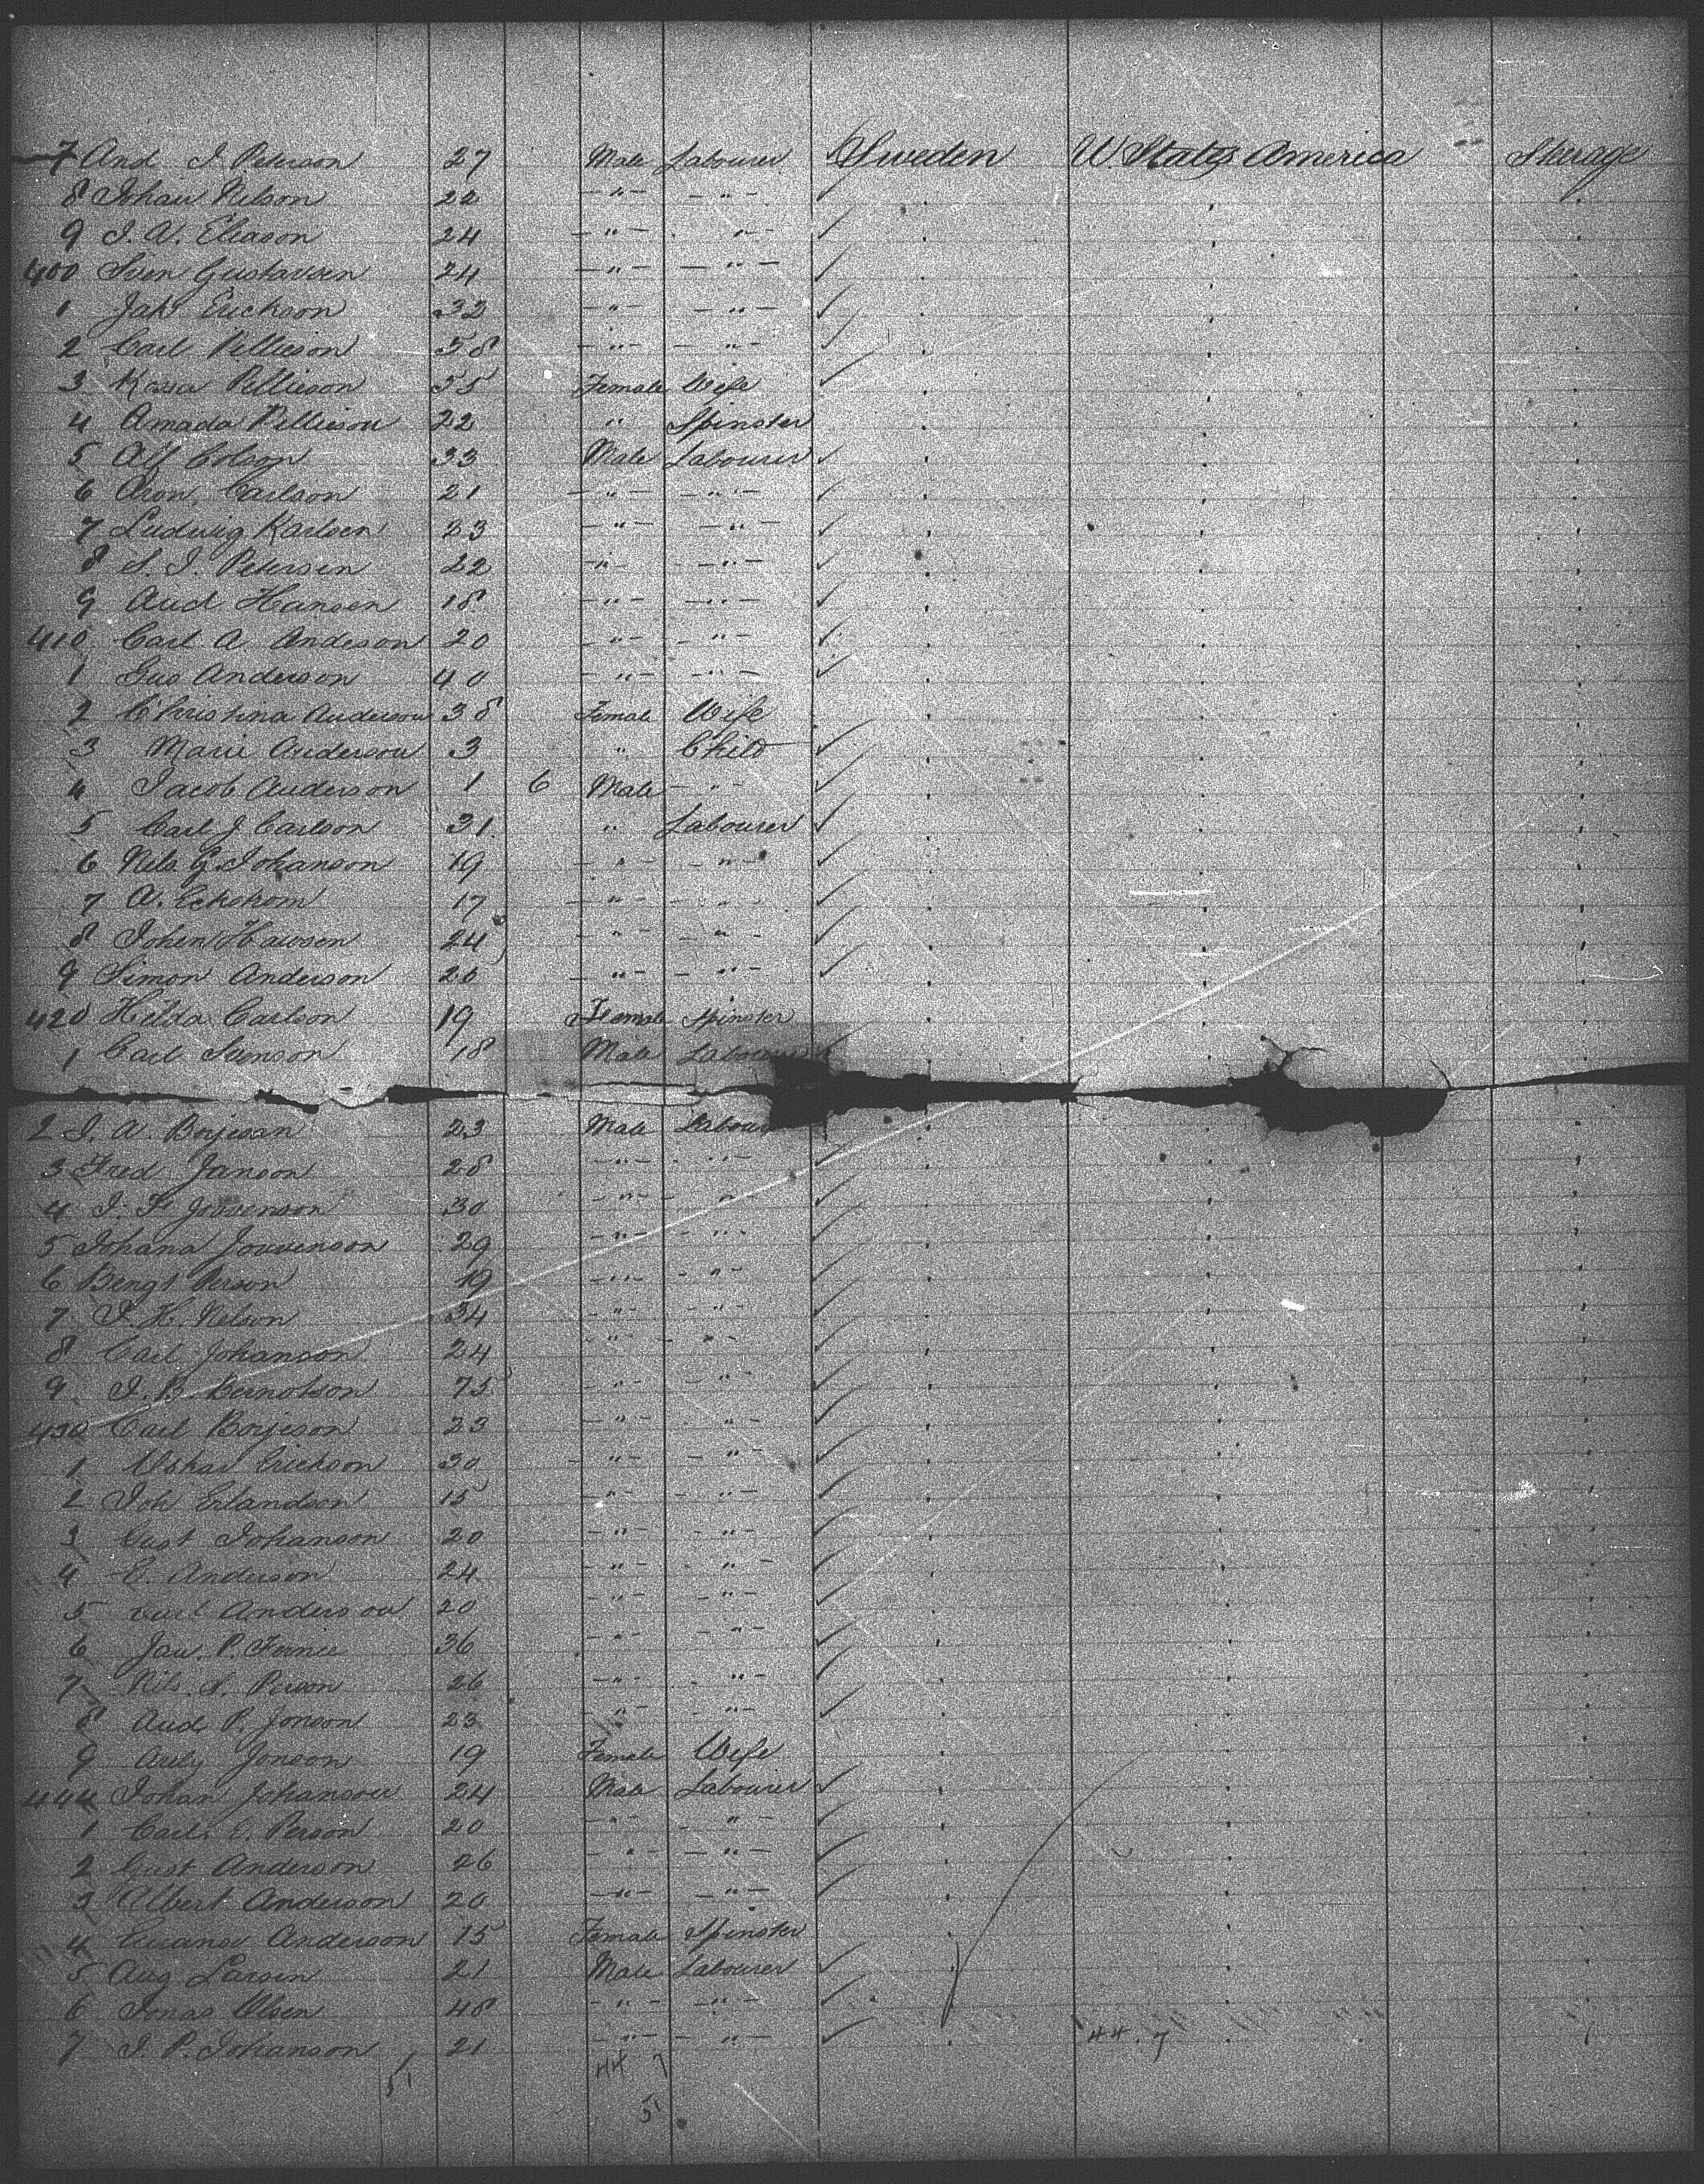 7 And J. Peterson 27 Male Labourer Sweden U. States America Sterage
8 Johan Nelson 22 - " - - " -
9 J. A. Eliason 24 - " - " -
400 Sven Gustavsen 24 - " - - " -
1 Jah Erickson 32 - " - - " -
2 Carl Pellieson 58 - " - - " -
3 Kassa Pellieson 55 Female Wife
4 Amada Pellieson 22 " Spinster
5 Alf Colson 33 Male Labourer
6 Aron Carlson 21 - " - - " -
7 Ludwig Karlsen 23 - " - - " -
8 S. J. Petersen 22 " - " -
9 And Hansen 18 - " - - " -
410 Carl A Andeson 20 - " - - " -
1 Gus Anderson 40 - " - - " -
2 Christina Anderson 38 Female Wife
3 Marie Anderson 3 " Child
4 Jacob Anderson 1 6 Male - " -
5 Carl J Carlson 31 " Labourer
6 Nils G Johanson 19 - " - - " -
7 A. Eckstrom 17 - " - - " -
8 Johen Hansen 24 - " - - " -
9 Simon Anderson 20 - " - - " -
420 Hilda Carlson 19 Female Spinster
1 Carl Svenson 18 Male Labourer
2 J. A. Borjesan 23 Male Labour
3 Fred Janson 28 - " - - " -
4 J. F. 30 - " - "
5 Johana 29 - " - - " -
6 Bengt Person 19 - " - - " -
7 J. H. Nelson 34 - " - - " -
8 Carl Johanson 24 - " - - " -
9 J. B. Berndtson 75 - " - - " -
430 Carl Borjeson 23 - " - - " -
1 Oskar Erickson 30 - " - - " -
2 Joh Erlandson 15 - " - - " -
3 Gust Johanson 20 - " - - " -
4 E. Anderson 24 - " - - " -
5 Carl Anderson 20 - " - - " -
6 Jan. P. 36 - " - - " -
7 Nils. S. Person 26 - " - - " -
8 And. P. Jonson 23 - " - - " -
9 Jonson 19 Female Wife
444 Johan Johanson 24 Male Labourer
1 Carl. E. Person 20 - " - "
2 Gust Anderson 26 - " - - " -
3 Albert Anderson 20 - " - - " -
4 Anderson 15 Female Spinster
5 Aug Larsen 21 Male Labourer
6 Jonas Olsen 48 - " - - " -
7 J. P. Johanson 21 - " - - " - 44.7
51 44 7
5